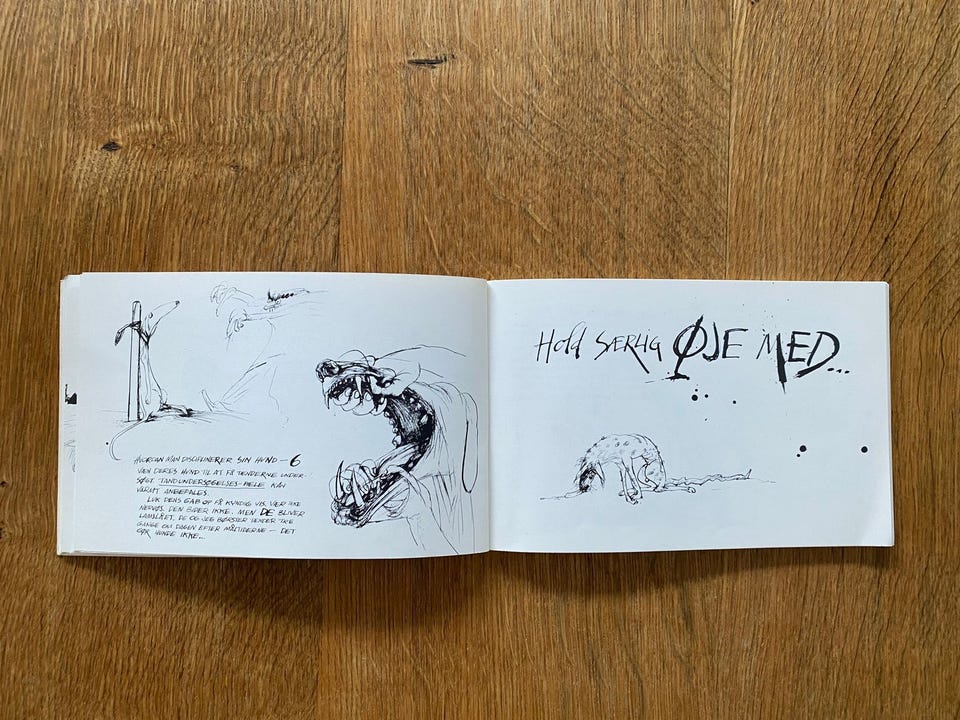 HVORDAN MAN DISCIPLINERER SIN HUND — 6
VÆN DERES HUND TIL AT FÅ TÆNDERNE UNDER-
SØGT. TANDUNDERSØGELSES-PÆLE KAN
VARMT ANBEFALES.
LUK DENS GAB OP PÅ KYNDIG VIS. VÆR IKE
NERVØS. DEN BIDER IKKE. MEN DE BLIVER
LAMSLÅET. DE OG JEG BØRSTER TÆNDER TRE
GANGE OM DAGEN EFTER MÅLTIDERNE — DET
GØR HUNDE IKKE..
Hold SÆRLIG ØJE MED...